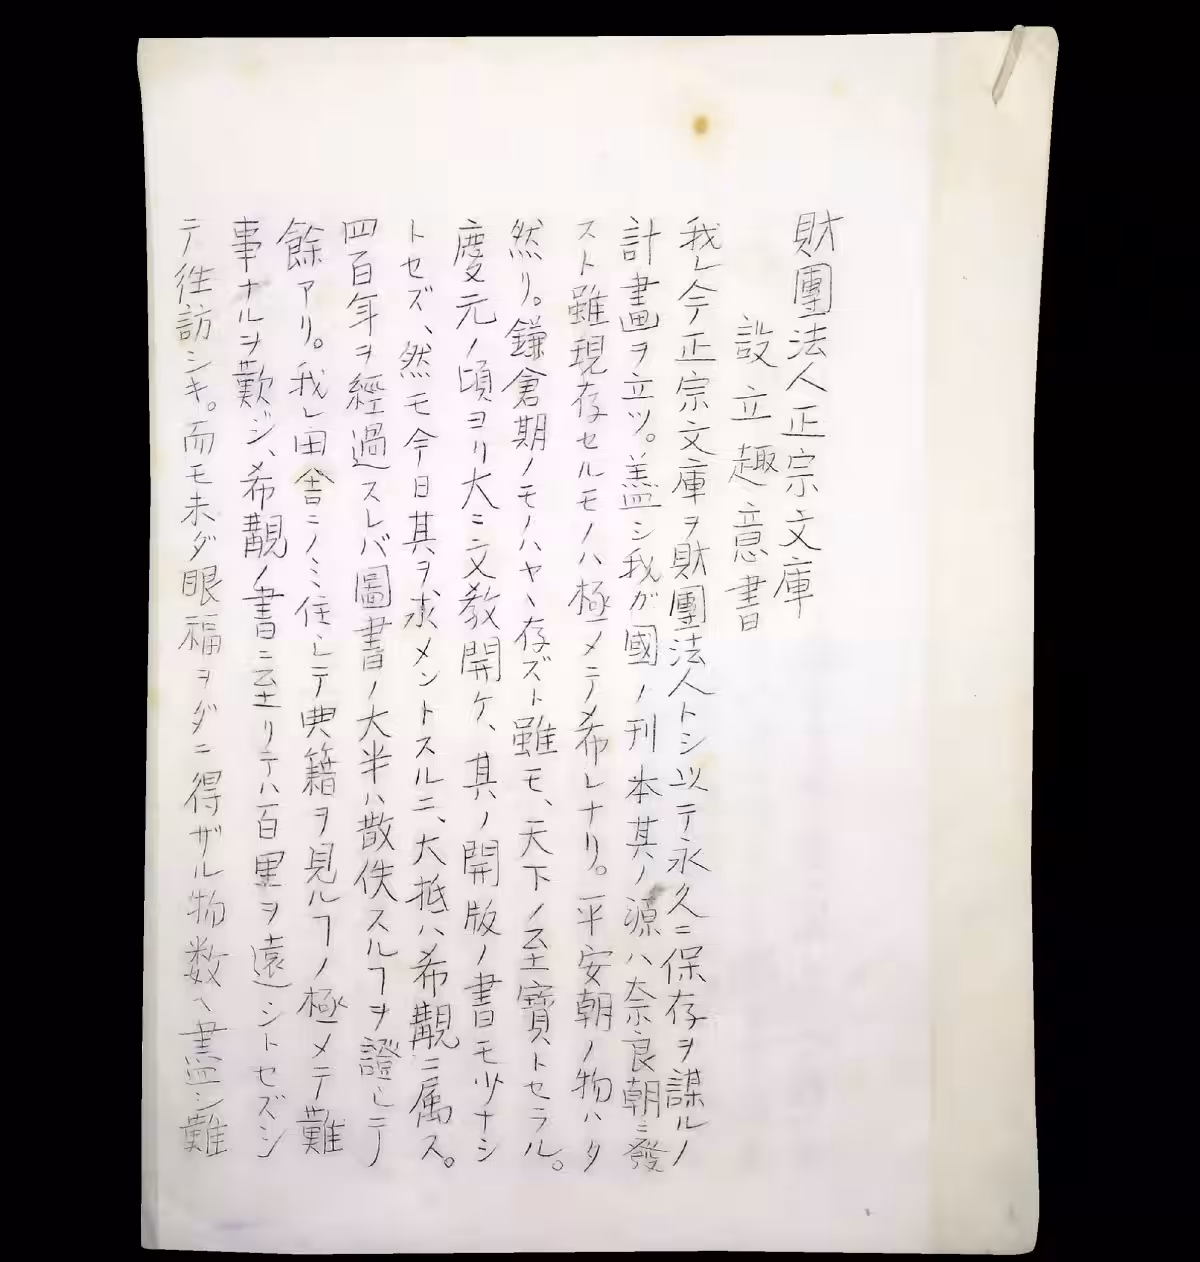 財團法人正宗文庫
設立趣意書
我レ今正宗文庫ヲ財團法人トシ以テ永久ニ保存ヲ謀ルノ
計畫ヲ立ツ。蓋シ我ガ國ノ刊本其ノ源ハ奈良朝ニ發
スト雖現存セルモノハ極メテ希レナリ。平安朝ノ物ハタ
然リ。鎌倉期ノモノハヤヽ存ズト雖モ、天下ノ至寶トセラル。
慶元ノ頃ヨリ大ニ文教開ケ、其ノ開版ノ書モ少ナシ
トセズ、然モ今日其ヲ求メントスルニ、大抵ハ希覯ニ属ス。
四百年ヲ經過スレバ圖書ノ大半ハ散佚スルヿヲ證シテ
餘アリ。我レ田舎ニノミ住シテ典籍ヲ見ルヿノ極メテ難
事ナルヲ歎ジ、希覯ノ書ニ至リテハ百里ヲ遠シトセズシ
テ往訪シキ。而モ未ダ眼福ヲダニ得ザル物数ヘ盡シ難